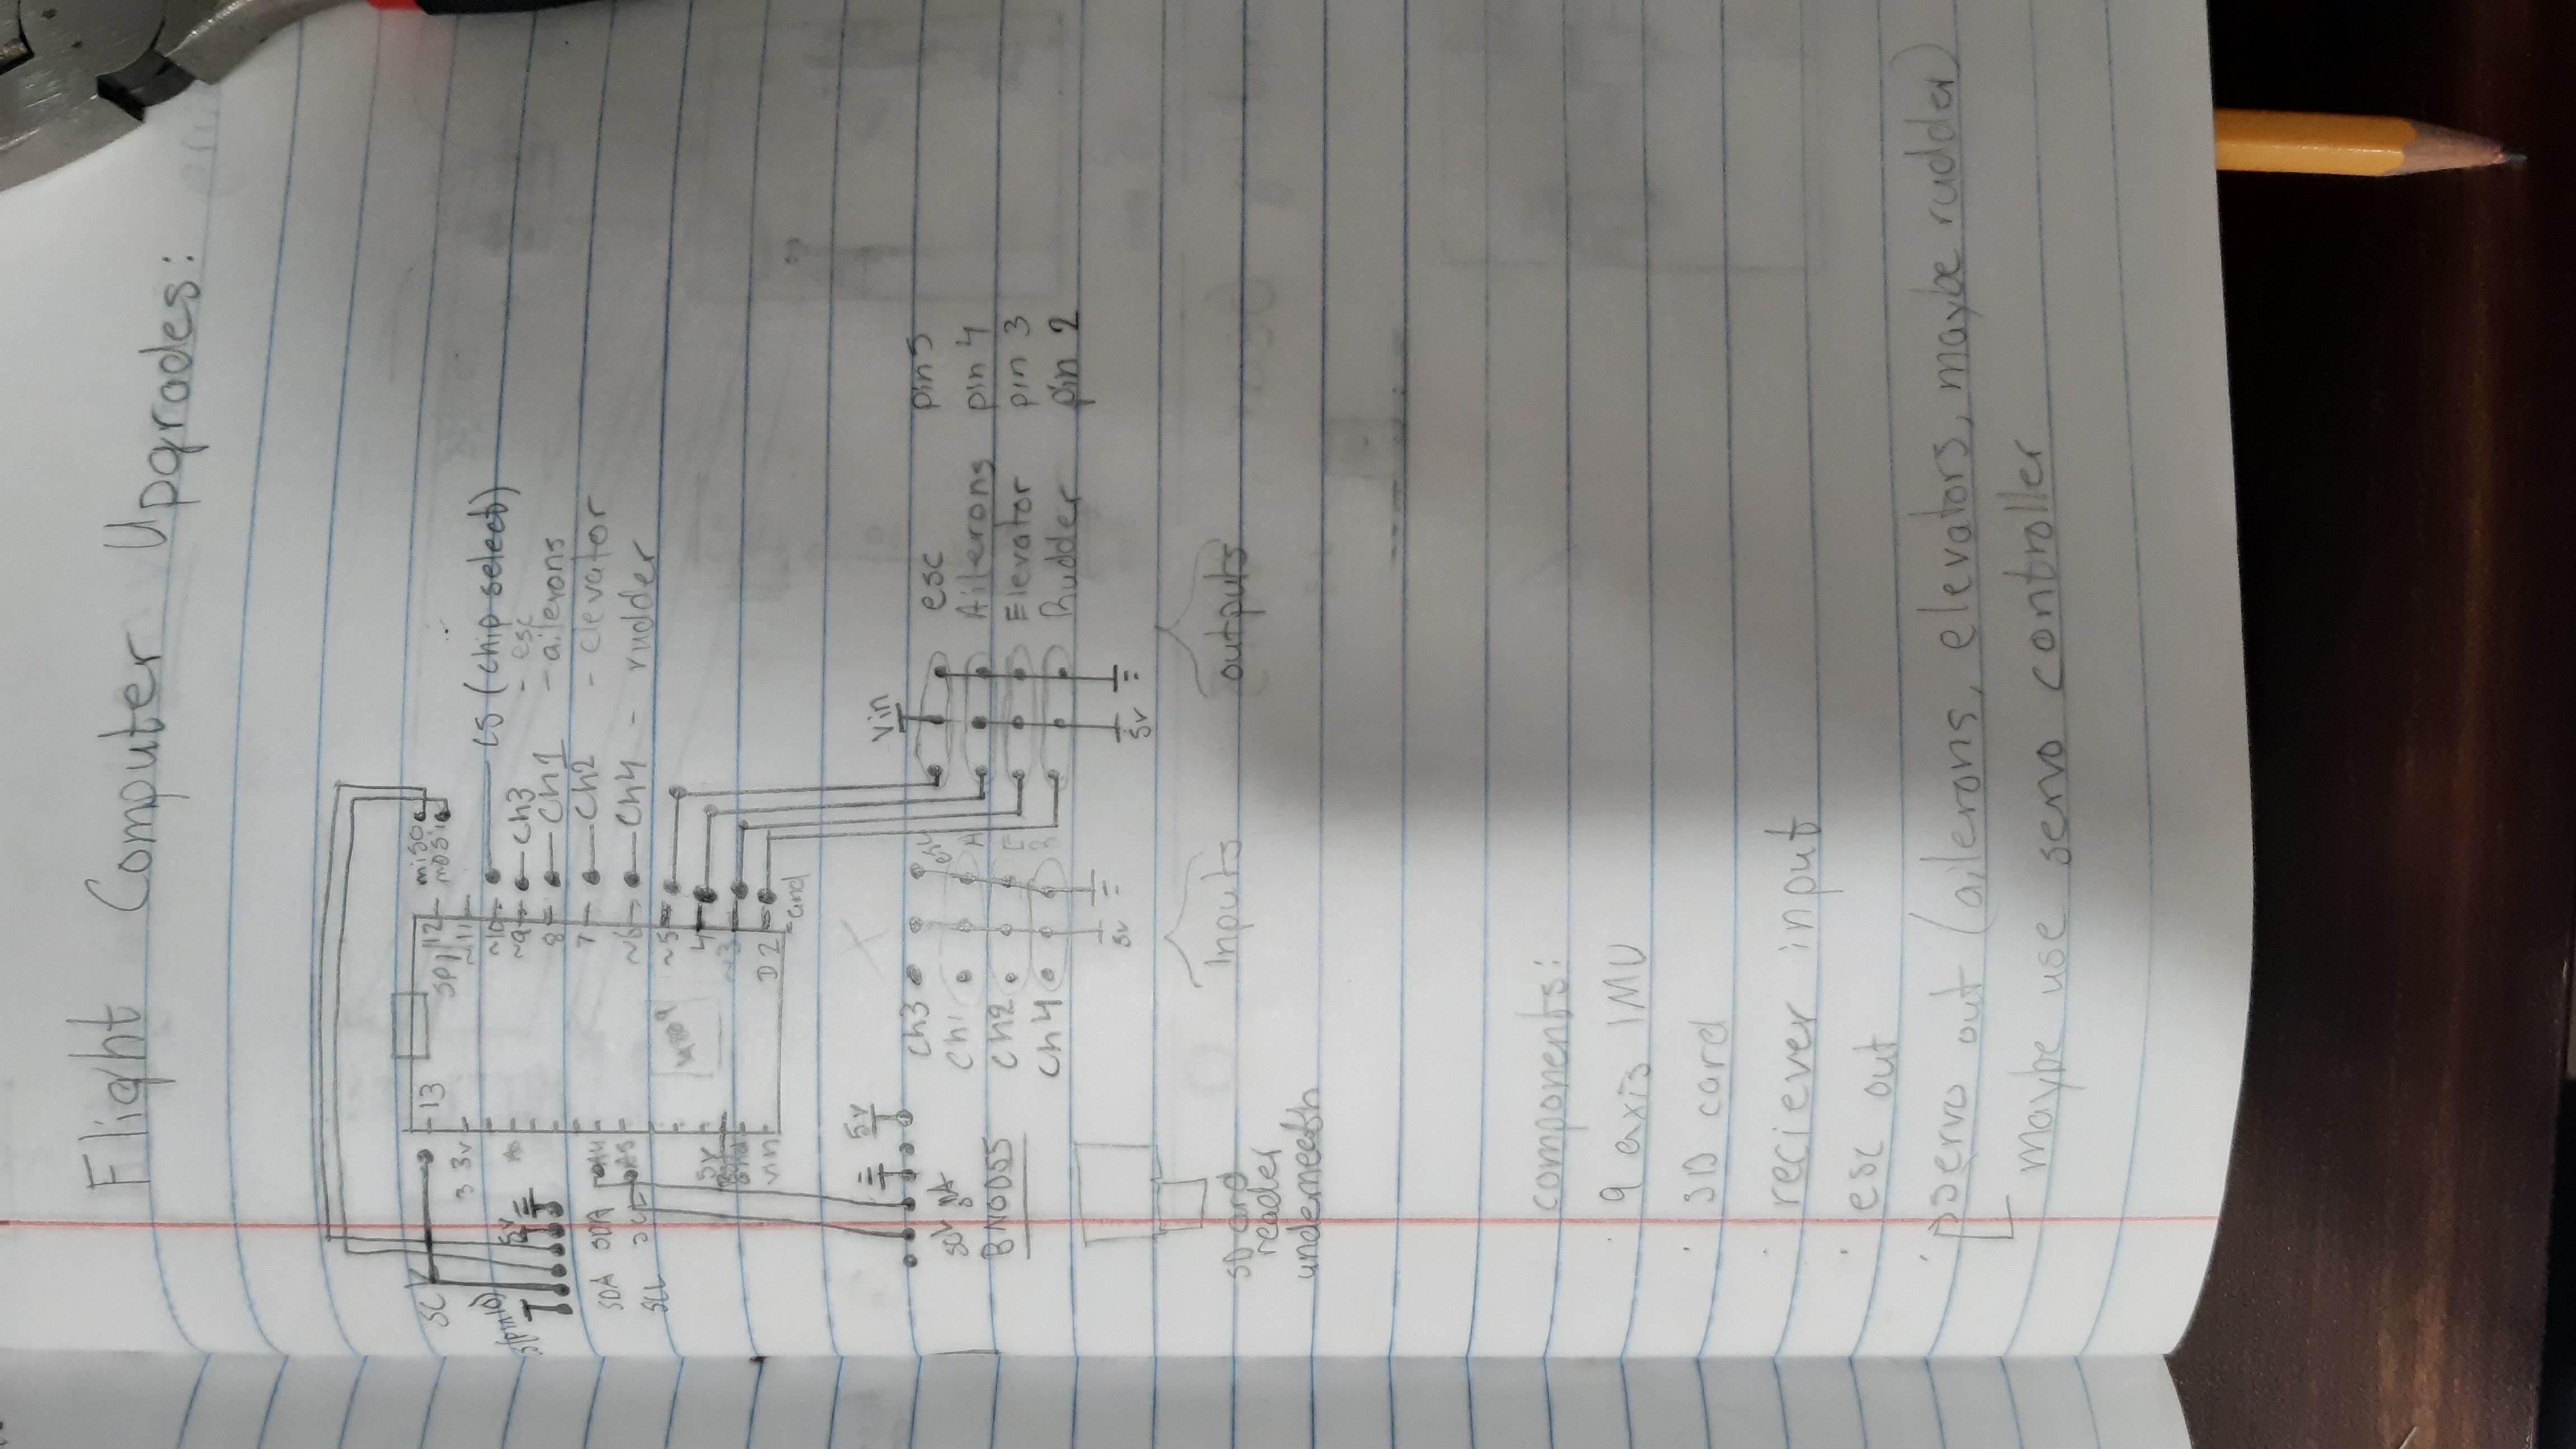 Flight Computer Upgrades:
miso
mosi
13
12
SPI
~11
3 3v
~10
CS (chip select)
~9
Ch3
- esc
A0
8
Ch1
- ailerons
7
Ch2
- elevator
SDA
SDA
A4
~6
Ch4
- rudder
SCL
A5
~5
5v
4
~3
Vin
D2
Gnd
SCK
(pin10)
5v
5v
Vin
Ch3
esc
pin 5
Ch1
A
Ailerons
pin 4
Ch2
E
Elevator
pin 3
Ch4
R
Rudder
pin 2
BNO055
5v
5v
Inputs
outputs
SD card
reader
underneath
components:
· 9 axis IMU
· SD card
· reciever input
· esc out
· servo out (ailerons, elevators, maybe rudder)
maybe use servo controller